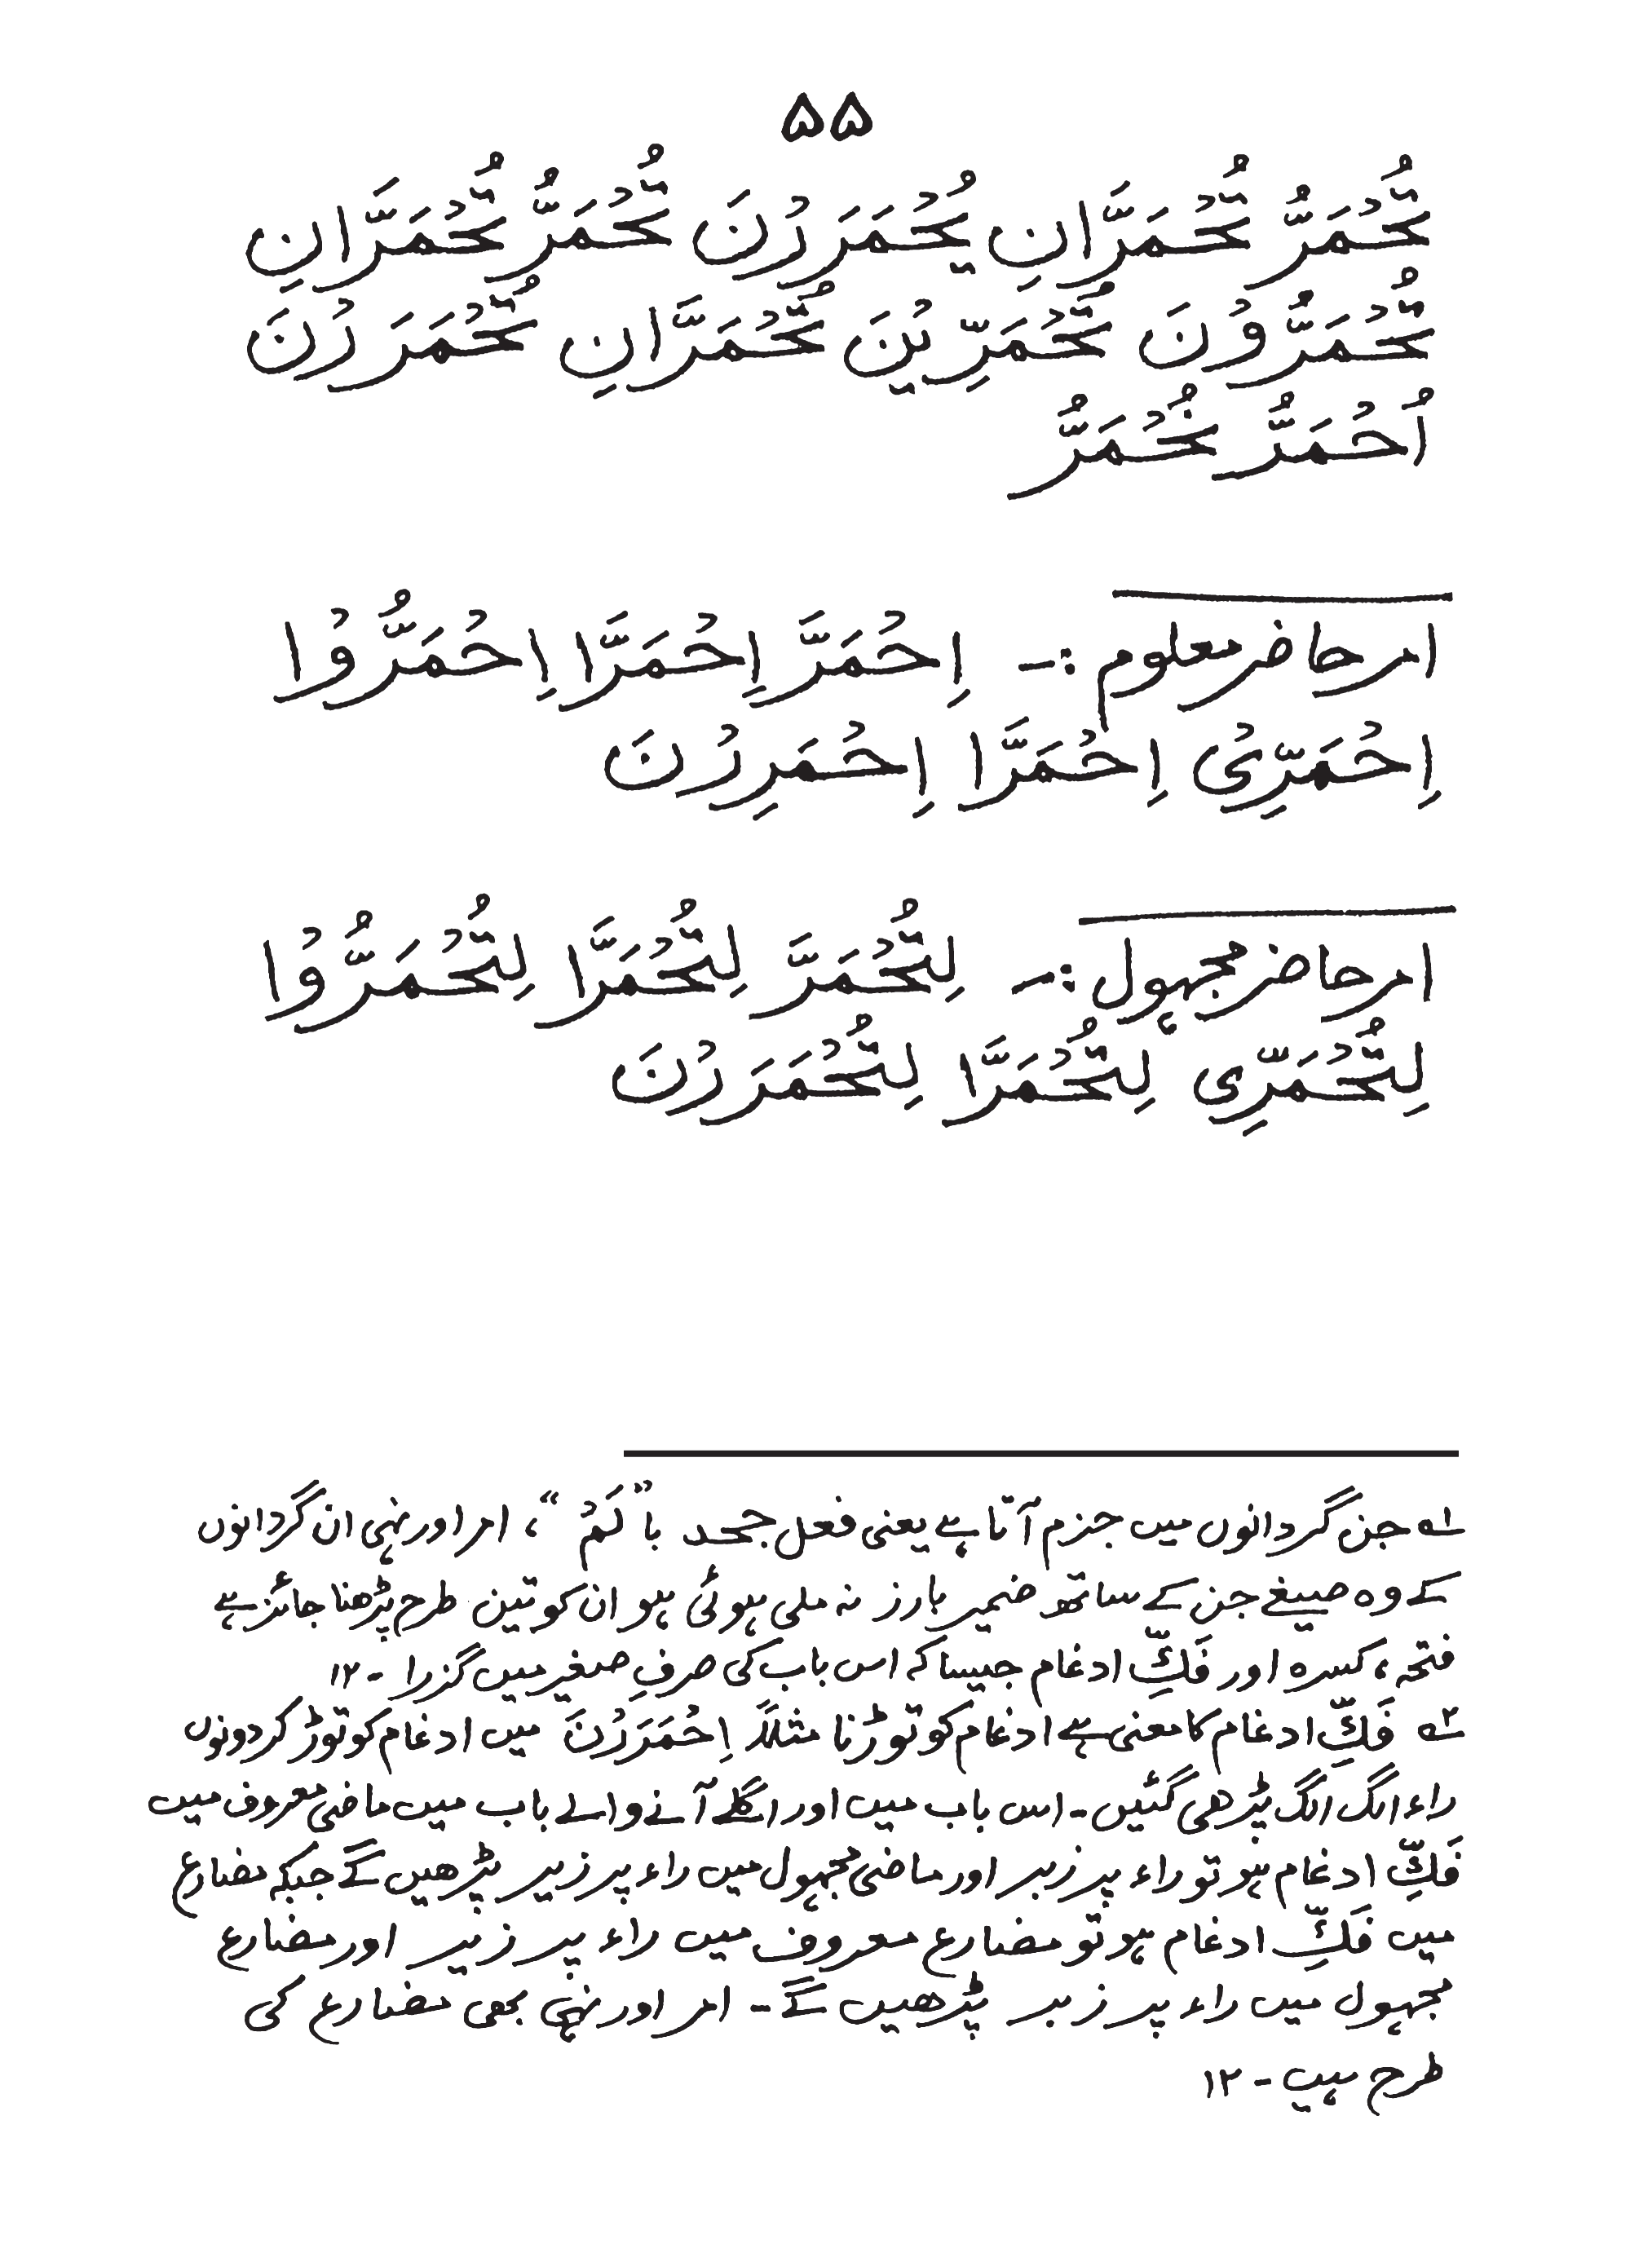 ۵۵
تُحْمَرُّ تُحْمَرَّانِ يُحْمَرَرْنَ تُحْمَرُّ تُحْمَرَّانِ
تُحْمَرُّوْنَ تُحْمَرِّيْنَ تُحْمَرَّانِ تُحْمَرَرْنَ
اُحْمَرُّ نُحْمَرُّ
امر حاضر معلوم :- اِحْمَرَّ اِحْمَرَّا اِحْمَرُّوْا
اِحْمَرِّىْ اِحْمَرَّا اِحْمَرِرْنَ
امر حاضر مجہول :- لِتُحْمَرَّ لِتُحْمَرَّا لِتُحْمَرُّوْا
لِتُحْمَرِّى لِتُحْمَرَّا لِتُحْمَرَرْنَ
۱؎ جن گردانوں میں جزم آتا ہے یعنی فعل جحد با ”لَمْ“ ، امر اور نہی ان گردانوں
کے وہ صیغے جن کے ساتھ ضمیر بارز نہ ملی ہوئی ہو ان کو تین طرح پڑھنا جائز ہے
فتحہ ، کسرہ اور فَکِّ ادغام جیسا کہ اس باب کی صرفِ صغیر میں گزرا - ۱۲
۲؎ فَکِّ ادغام کا معنی ہے ادغام کو توڑنا مثلاً اِحْمَرَرْنَ میں ادغام کو توڑ کر دونوں
راء الگ الگ پڑھی گئیں - اس باب میں اور اگلے آنے والے باب میں ماضی معروف میں
فَکِّ ادغام ہو تو راء پر زبر اور ماضی مجہول میں راء پر زیر پڑھیں گے جبکہ مضارع
میں فَکِّ ادغام ہو تو مضارع معروف میں راء پر زیر اور مضارع
مجہول میں راء پر زبر پڑھیں گے - امر اور نہی بھی مضارع کی
طرح ہیں - ۱۲